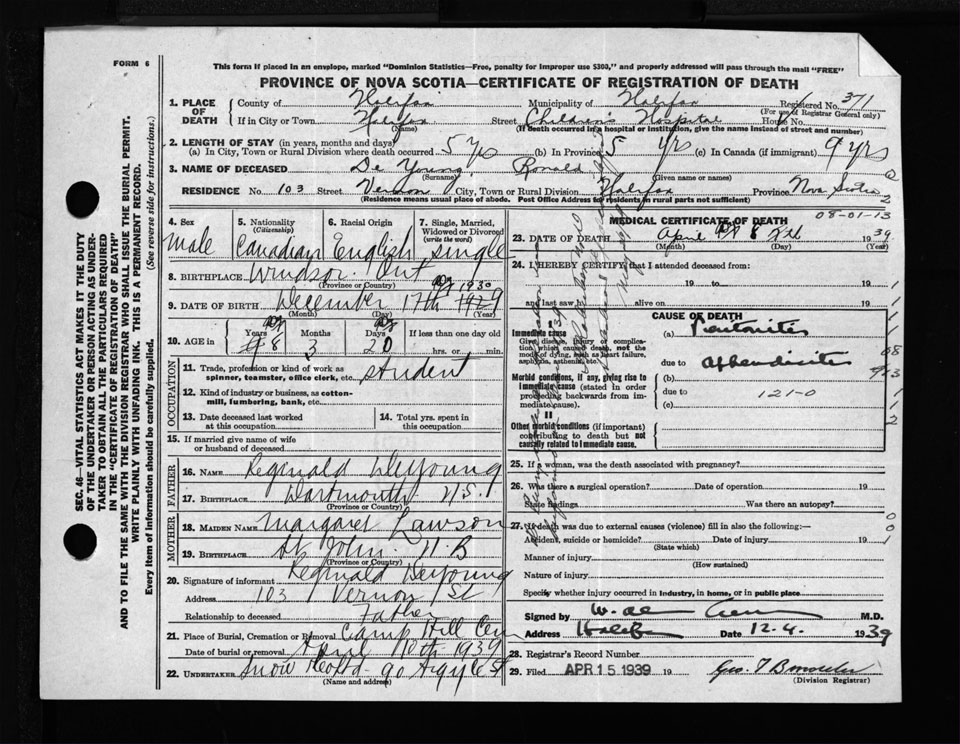 FORM 6
This form if placed in an envelope, marked "Dominion Statistics—Free, penalty for improper use $300," and properly addressed will pass through the mail "FREE"
PROVINCE OF NOVA SCOTIA—CERTIFICATE OF REGISTRATION OF DEATH
1. PLACE OF DEATH County of Halifax Municipality of Halifax Registered No. 371
(For use of Registrar General only)
If in City or Town Halifax Street Children's Hospital House No.
(Name) (If death occurred in a hospital or institution, give the name instead of street and number)
2. LENGTH OF STAY (in years, months and days)
(a) In City, Town or Rural Division where death occurred 5 yrs (b) In Province 5 yrs (c) In Canada (if immigrant) 9 yrs
3. NAME OF DECEASED De Young Ronald
(Surname) (Given name or names)
RESIDENCE No. 103 Street Vernon City, Town or Rural Division Halifax Province Nova Scotia
(Residence means usual place of abode. Post Office Address for residents in rural parts not sufficient)
08-01-13
4. Sex
Male
5. Nationality
(Citizenship)
Canadian
6. Racial Origin
English
7. Single, Married, Widowed or Divorced
(write the word)
Single
8. BIRTHPLACE Windsor Ont
(Province or Country)
1930
9. DATE OF BIRTH December 17th 1929
(Month) (Day) (Year)
10. AGE in Years Months Days If less than one day old
8 3 20 hrs. or min.
OCCUPATION
11. Trade, profession or kind of work as spinner, teamster, office clerk, etc. Student
12. Kind of industry or business, as cotton-mill, lumbering, bank, etc.
13. Date deceased last worked at this occupation
14. Total yrs. spent in this occupation
15. If married give name of wife or husband of deceased
FATHER
16. NAME Reginald DeYoung
17. BIRTHPLACE Dartmouth N.S.
(Province or Country)
MOTHER
18. MAIDEN NAME Margaret Lawson
19. BIRTHPLACE St John. N.B
(Province or Country)
20. Signature of informant Reginald DeYoung
Address 103 Vernon St
Relationship to deceased Father
21. Place of Burial, Cremation or Removal Camp Hill Cem
Date of burial or removal April 10th 1939
22. UNDERTAKER Snow 90 Argyle St
(Name and address)
MEDICAL CERTIFICATE OF DEATH
23. DATE OF DEATH April 8 1939
(Month) (Day)
24. I HEREBY CERTIFY that I attended deceased from:
19 to 19
and last saw alive on 19
CAUSE OF DEATH
Immediate cause
Give disease, injury or complication which caused death, not the mode of dying, such as heart failure, asphyxia, asthenia, etc.
(a) Peritonitis
due to appendicitis
Morbid conditions, if any, giving rise to immediate cause (stated in order proceeding backwards from immediate cause).
(b)
due to 121-0
(c)
II
Other morbid conditions (if important) contributing to death but not causally related to immediate cause.
25. If a woman, was the death associated with pregnancy?
26. Was there a surgical operation? Date of operation 19
State findings Was there an autopsy?
27. If death was due to external causes (violence) fill in also the following:—
Accident, suicide or homicide? Date of injury 19
(State which)
Manner of injury
(How sustained)
Nature of injury
Specify whether injury occurred in industry, in home, or in public place
Signed by M.D.
Address Halifax Date 12.4. 1939
28. Registrar's Record Number
29. Filed APR 15 1939 19
(Division Registrar)
SEC. 46—VITAL STATISTICS ACT MAKES IT THE DUTY OF THE UNDERTAKER OR PERSON ACTING AS UNDERTAKER TO OBTAIN ALL THE PARTICULARS REQUIRED IN THE "CERTIFICATE OF REGISTRATION OF DEATH" AND TO FILE THE SAME WITH THE DIVISION REGISTRAR WHO SHALL ISSUE THE BURIAL PERMIT.
WRITE PLAINLY WITH UNFADING INK. THIS IS A PERMANENT RECORD.
Every item of information should be carefully supplied. (See reverse side for instructions.)